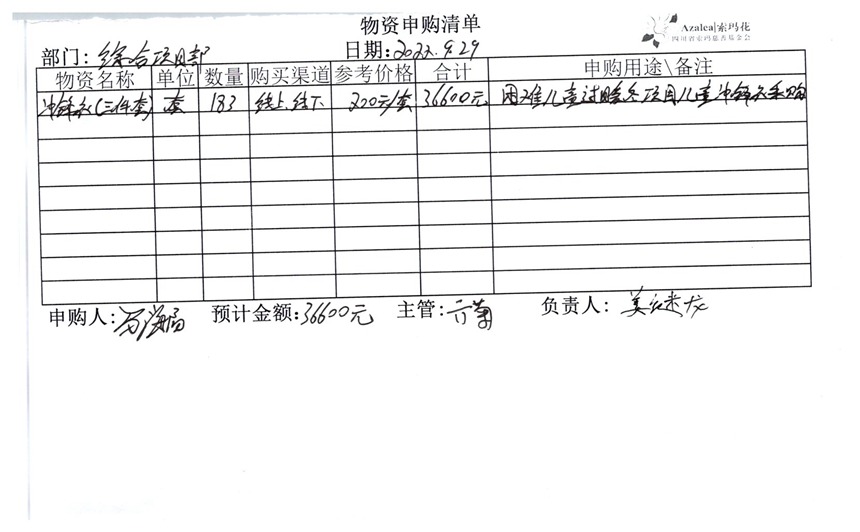 物资申购清单
Azalea|索玛花
四川省索玛慈善基金会
部门:综合项目部 日期:2022.9.29
物资名称 单位 数量 购买渠道 参考价格 合计 申购用途\备注
冲锋衣(三件套) 套 183 线上线下 200元/套 36600元 困难儿童过暖冬项目儿童冲锋衣采购
申购人: 预计金额:36600元 主管: 负责人: